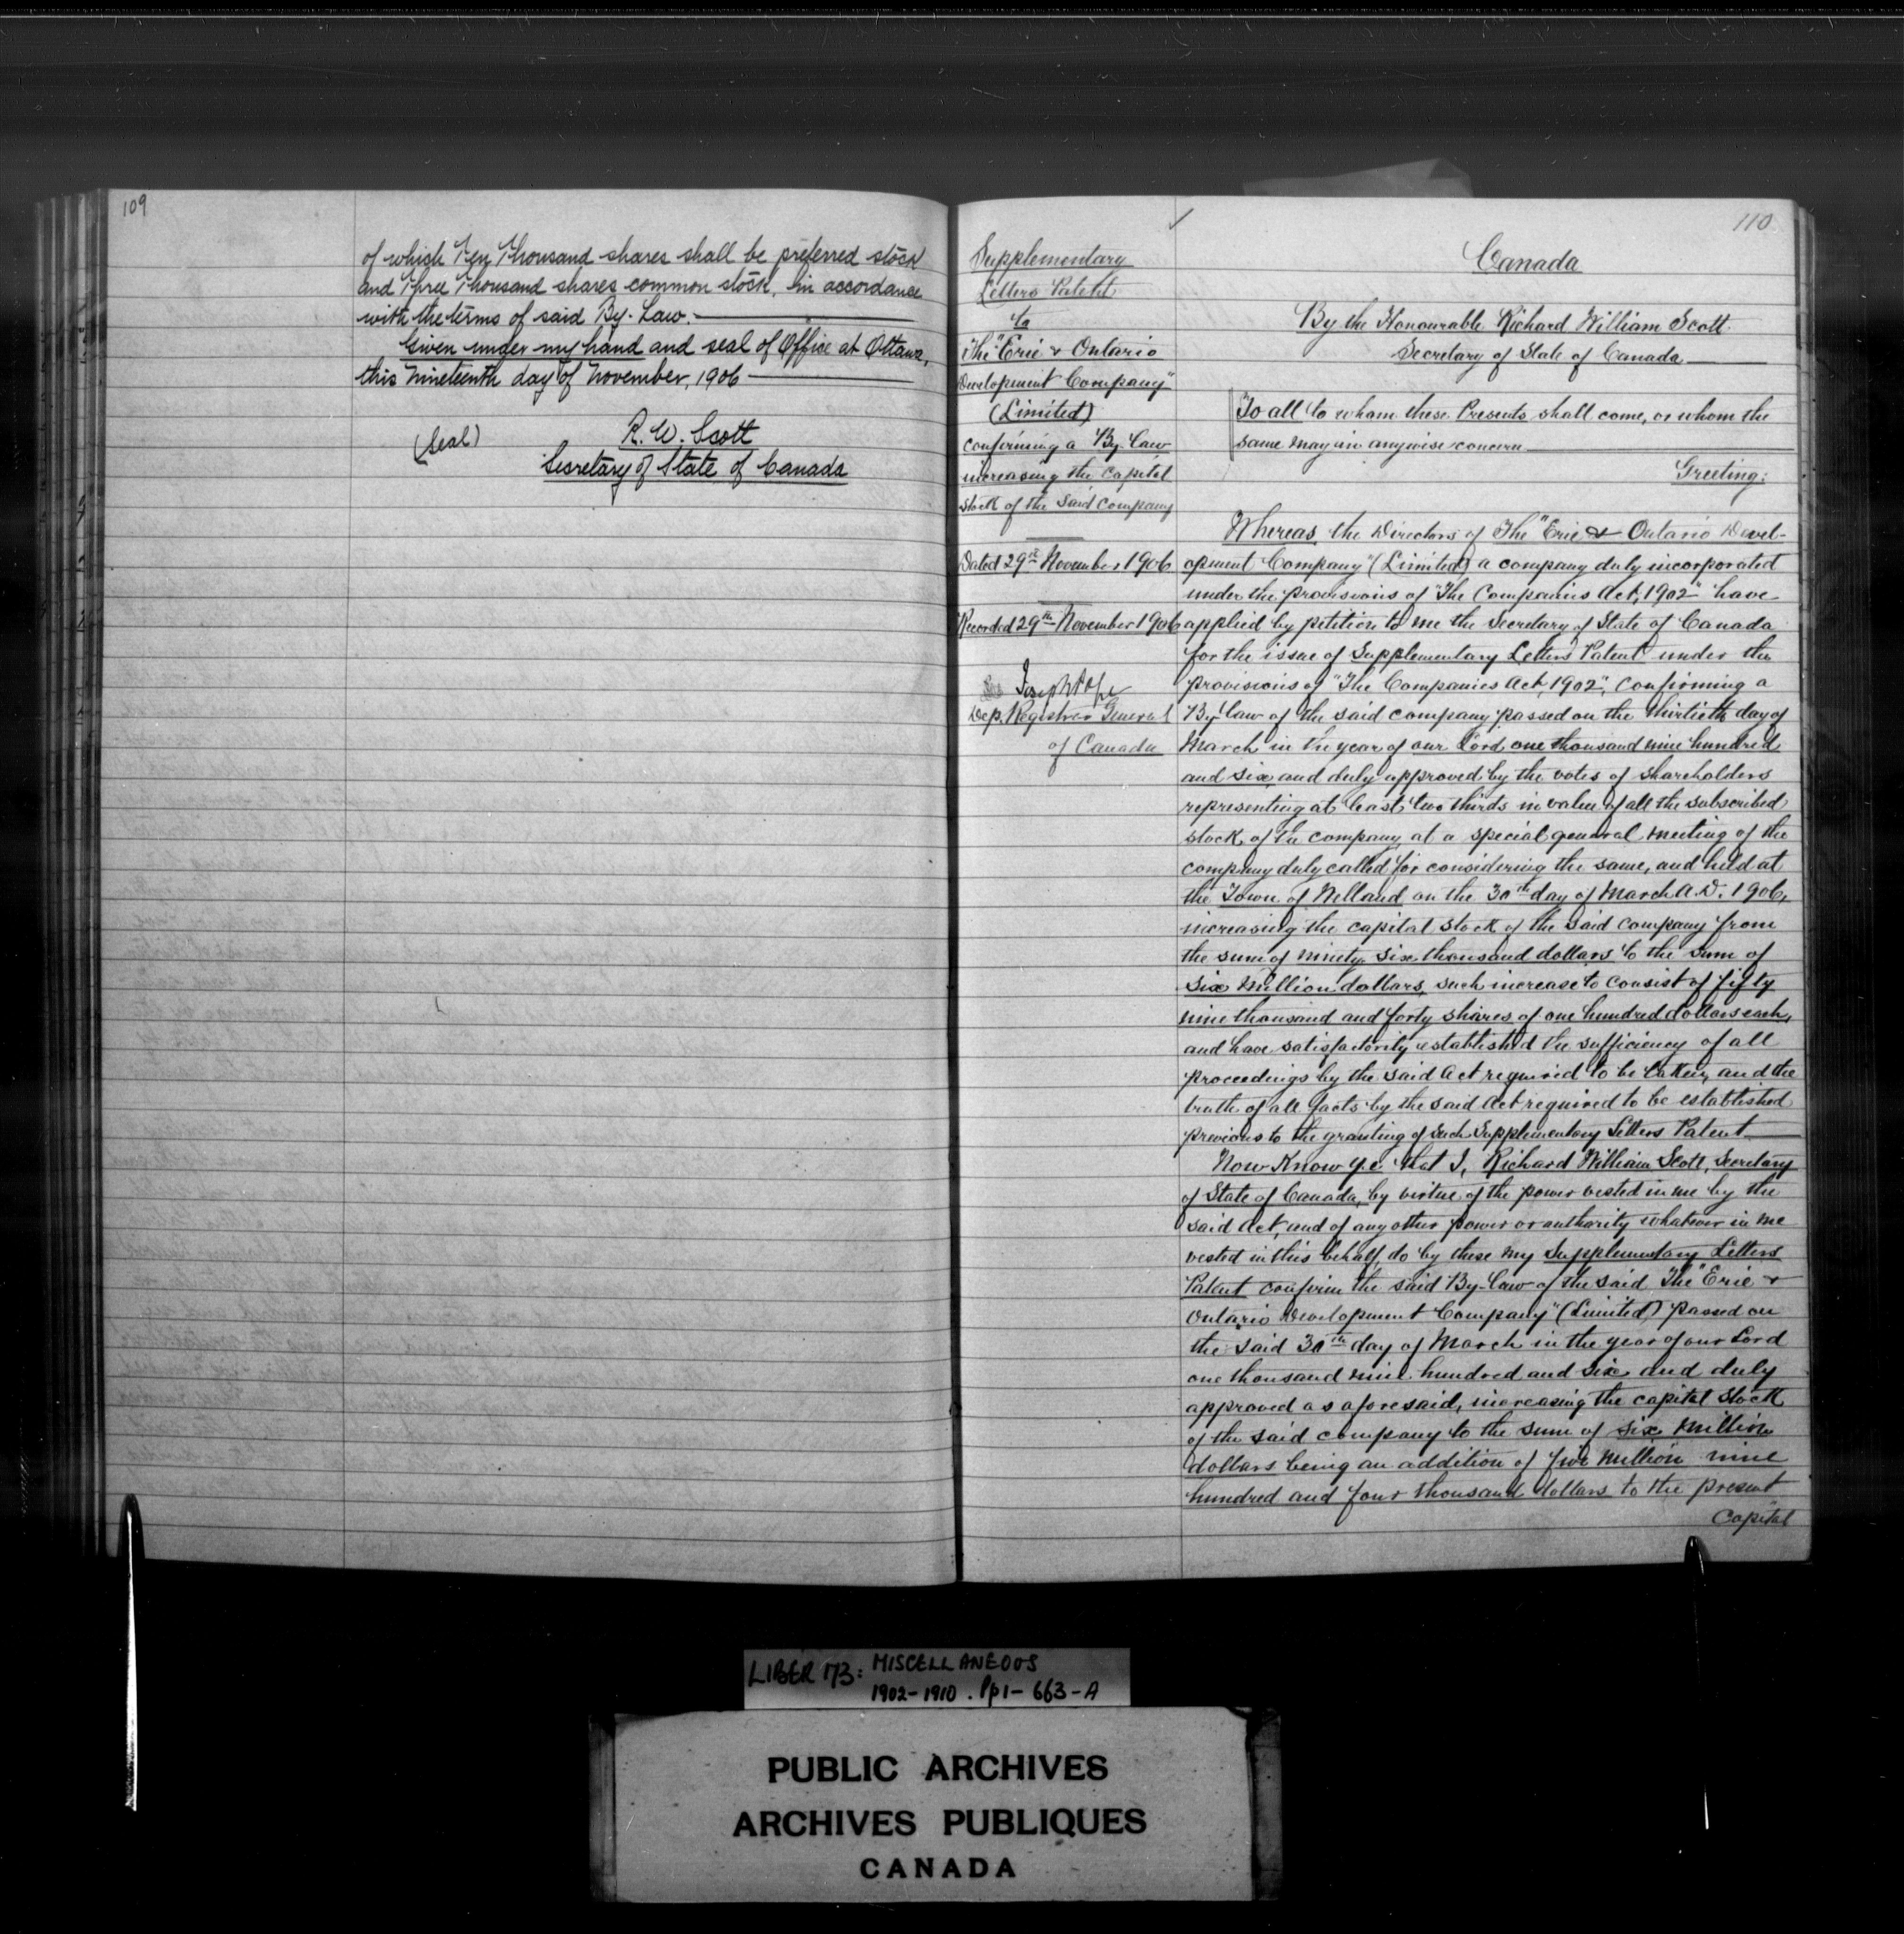 109
of which Ten Thousand shares shall be preferred stock
and Three Thousand shares common stock, in accordance
with the terms of said By-Law.
Given under my hand and seal of Office at Ottawa,
this nineteenth day of November, 1906
(Seal)
R. W. Scott
Secretary of State of Canada
110
Supplementary
Letters Patent
to
The "Erie & Ontario
Development Company"
(Limited)
confirming a By-Law
increasing the capital
stock of the said company
Dated 29th November 1906
Recorded 29th November 1906
Joseph Pope
Dep. Registrar General
of Canada
Canada
By the Honourable Richard William Scott
Secretary of State of Canada
To all to whom these Presents shall come, or whom the
same may in anywise concern
Greeting:
Whereas the Directors of The "Erie & Ontario Devel-
opment Company" (Limited) a company duly incorporated
under the provisions of "The Companies Act, 1902" have
applied by petition to me the Secretary of State of Canada
for the issue of Supplementary Letters Patent under the
provisions of "The Companies Act, 1902", confirming a
By-law of the said company passed on the thirtieth day of
March in the year of our Lord one thousand nine hundred
and six, and duly approved by the votes of shareholders
representing at least two thirds in value of all the subscribed
stock of the company, at a special general meeting of the
company duly called for considering the same, and held at
the Town of Welland on the 30th day of March A.D. 1906,
increasing the capital stock of the said company from
the sum of ninety six thousand dollars to the sum of
six million dollars, such increase to consist of fifty
nine thousand and forty shares of one hundred dollars each,
and have satisfactorily established the sufficiency of all
proceedings by the said Act required to be taken, and the
truth of all facts by the said Act required to be established
previous to the granting of such Supplementary Letters Patent
Now Know Ye that I, Richard William Scott, Secretary
of State of Canada, by virtue of the power vested in me by the
said Act, and of any other power or authority whatever in me
vested in this behalf, do by these my Supplementary Letters
Patent confirm the said By-Law of the said The "Erie &
Ontario Development Company" (Limited) passed on
the said 30th day of March in the year of our Lord
one thousand nine hundred and six and duly
approved as aforesaid, increasing the capital stock
of the said company to the sum of six million
dollars being an addition of five million nine
hundred and four thousand dollars to the present
Capital
LIBER 173: MISCELLANEOUS
1902-1910. Pp1-663-A
PUBLIC ARCHIVES
ARCHIVES PUBLIQUES
CANADA